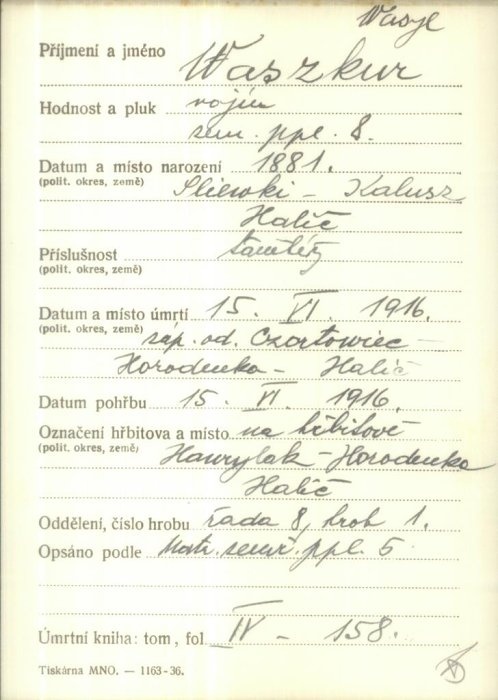 Wasyl
Příjmení a jméno Waszkur
Hodnost a pluk vojín
zem. ppl. 8.
Datum a místo narození 1881.
(polit. okres, země) Sliwki – Kalusz
Halič
Příslušnost tamtéž
(polit. okres, země)
Datum a místo úmrtí 15. VI. 1916.
(polit. okres, země) záp. od. Czortowiec –
Horodenka – Halič
Datum pohřbu 15. VI. 1916.
Označení hřbitova a místo na hřbitově
(polit. okres, země) Hawrylak – Horodenka
Halič
Oddělení, číslo hrobu řada 8, hrob 1.
Opsáno podle Matr. zeměř. ppl. 5
Úmrtní kniha: tom, fol. IV – 158.
Tiskárna MNO. — 1163-36.